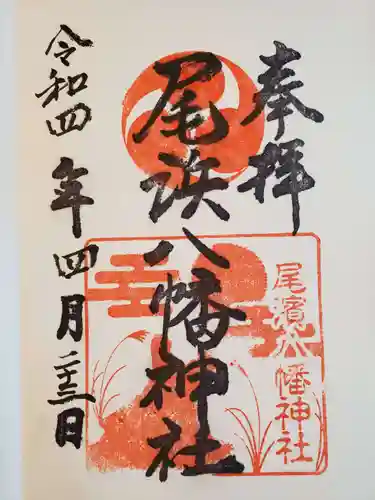 奉拝
尾浜八幡神社
令和四年四月二十三日
尾濱八幡神社